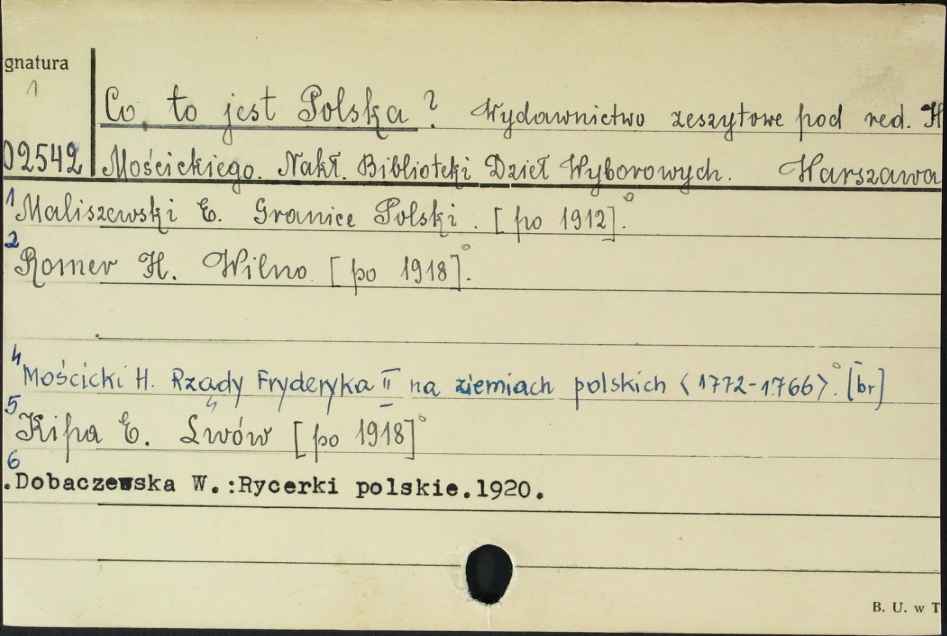 gnatura
1
Co to jest Polska? Wydawnictwo zeszytowe pod red. H
02542 Mościckiego. Nakł. Bibljoteki Dzieł Wyborowych. Warszawa
1 Maliszewski E. Granice Polski. [po 1912].°
2 Romer H. Wilno [po 1918].°
4 Mościcki H. Rządy Fryderyka II na ziemiach polskich <1772-1766>.° [br]
5 Kipa E. Lwów [po 1918]°
6
.Dobaczewska W.:Rycerki polskie.1920.
B. U. w T